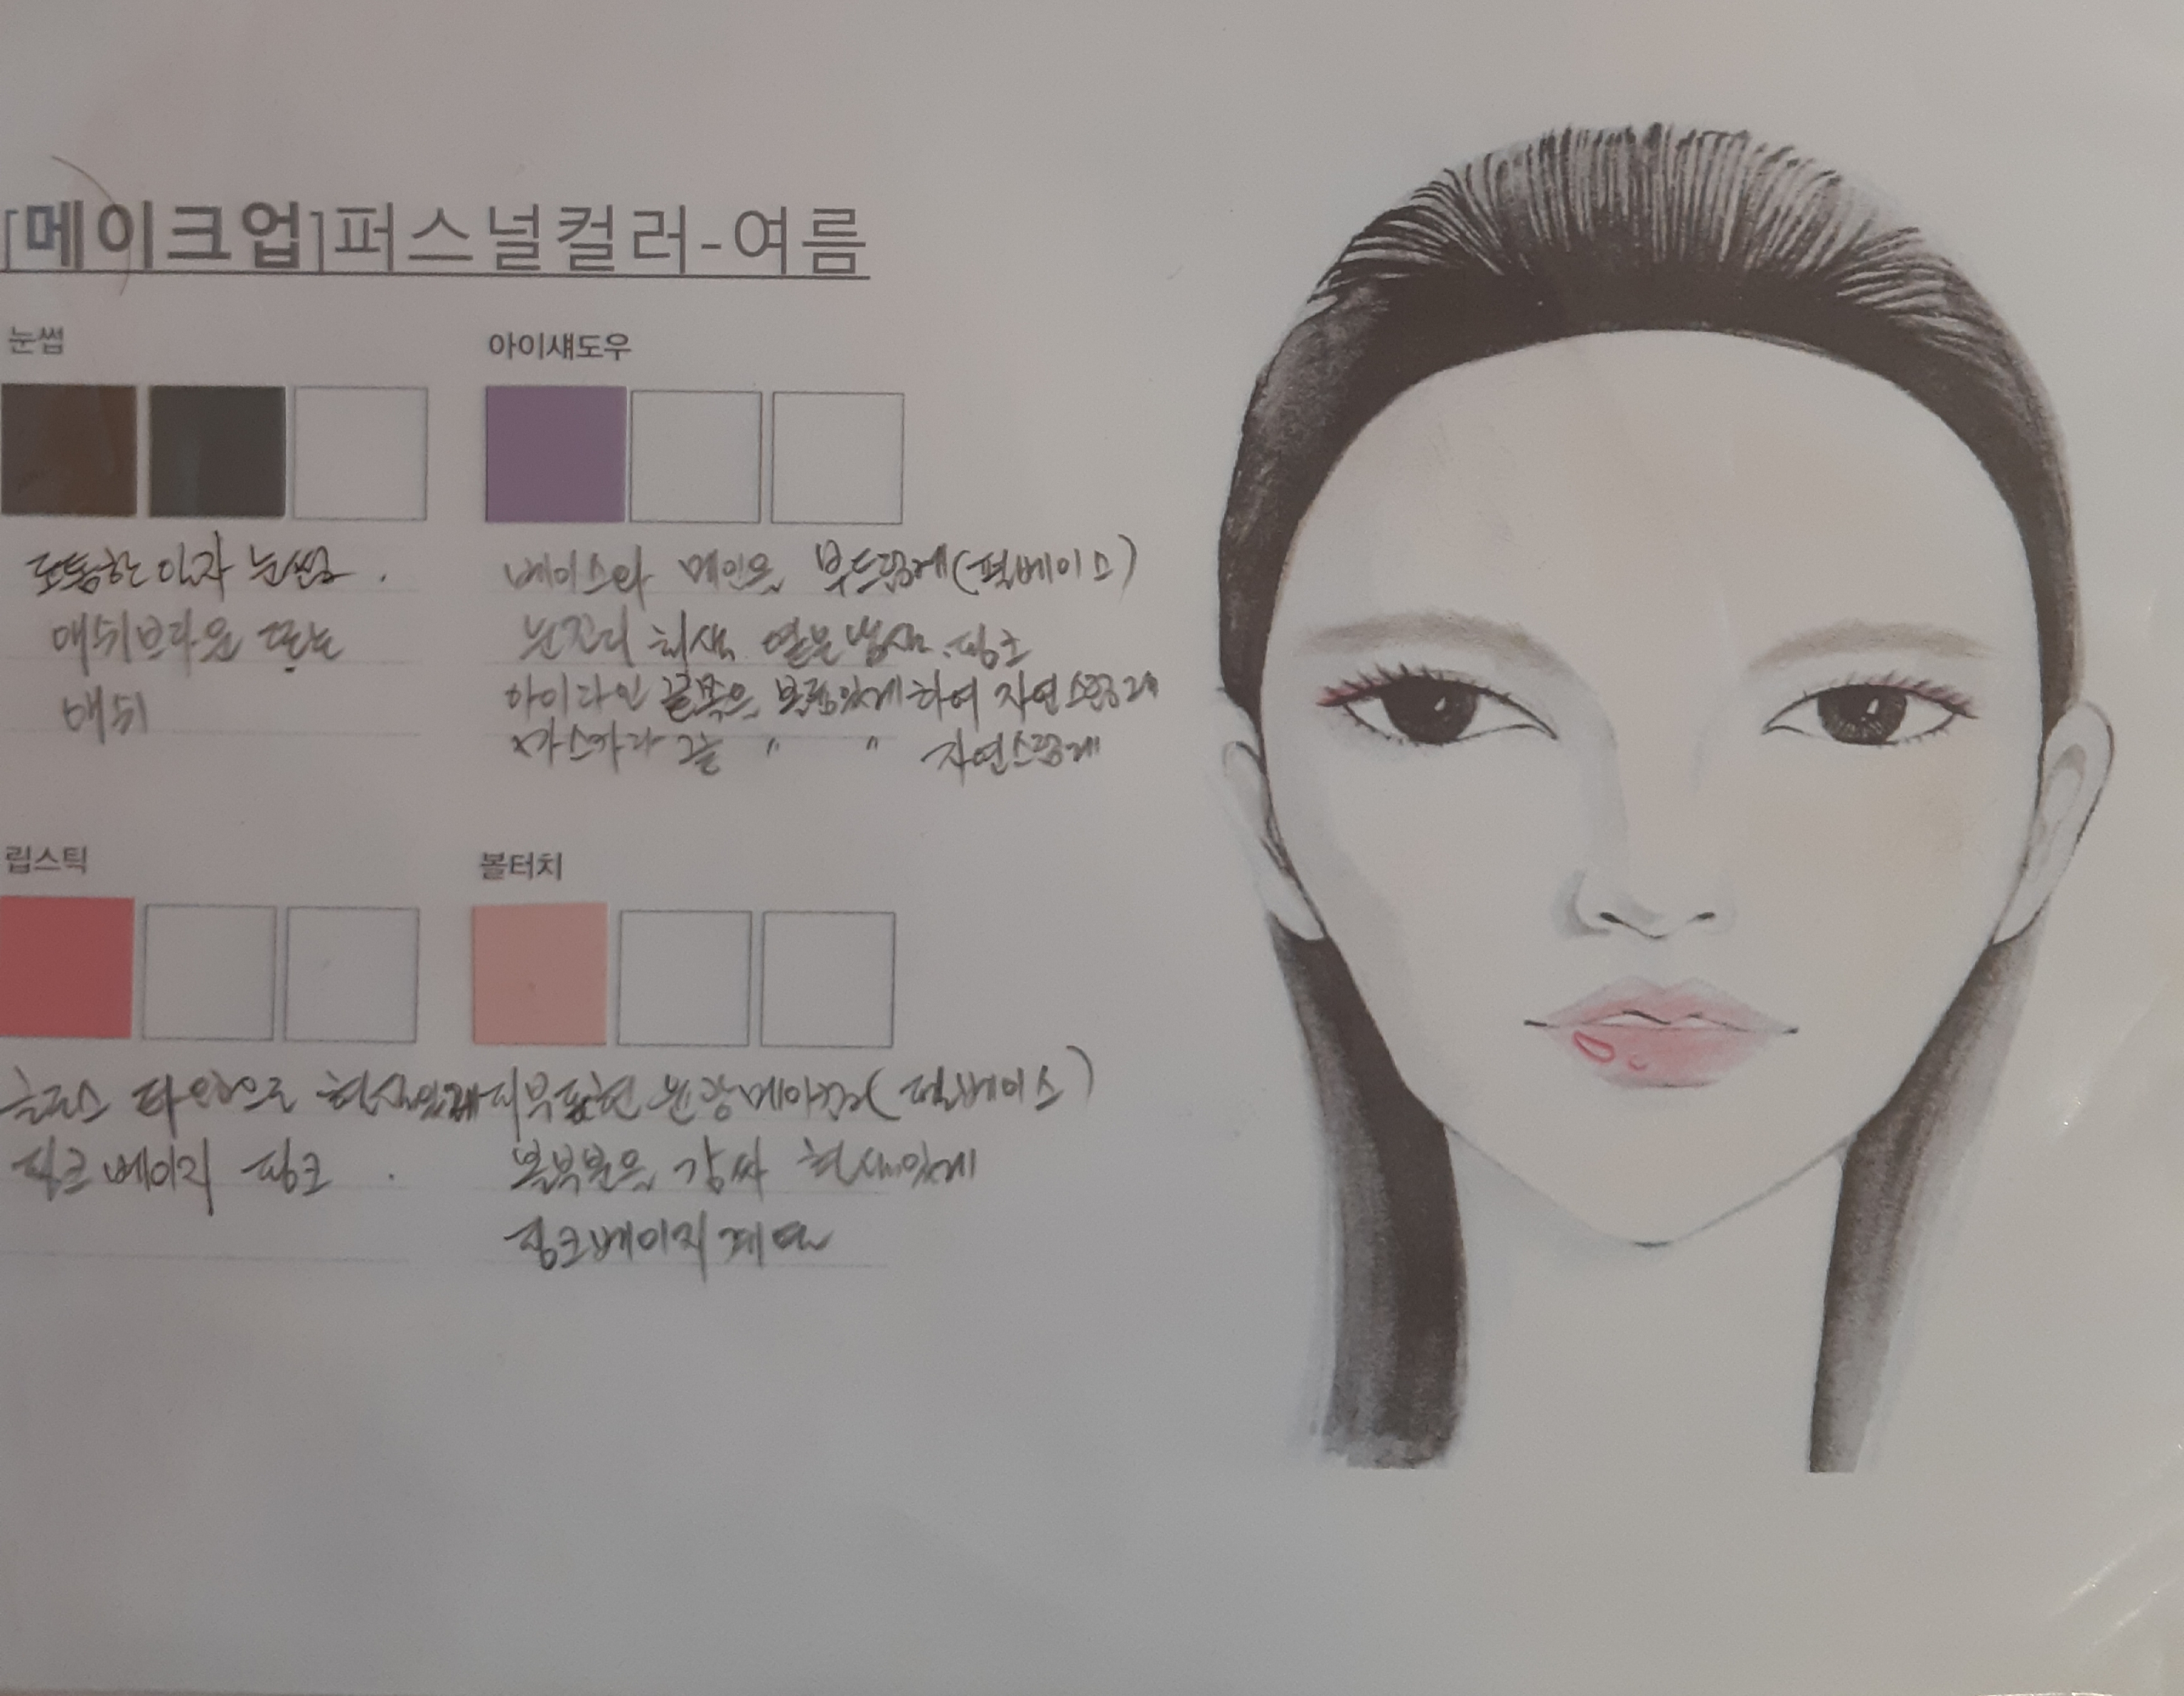 [메이크업]퍼스널컬러-여름
눈썹
도톰한 일자 눈썹.
애쉬브라운 또는
애쉬
아이섀도우
베이스와 메인은 부드럽게(펄베이스)
눈꼬리 회색 핑크
아이라인 끝쪽은 볼륨있게하여 자연스럽게
마스카라 끝 〃 〃 자연스럽게
립스틱
글로스 타입으로 혈색있게
핑크베이지 핑크.
볼터치
피부표현 윤광메이컵(펄베이스)
볼부분은 감싸 혈색있게
핑크베이지계열